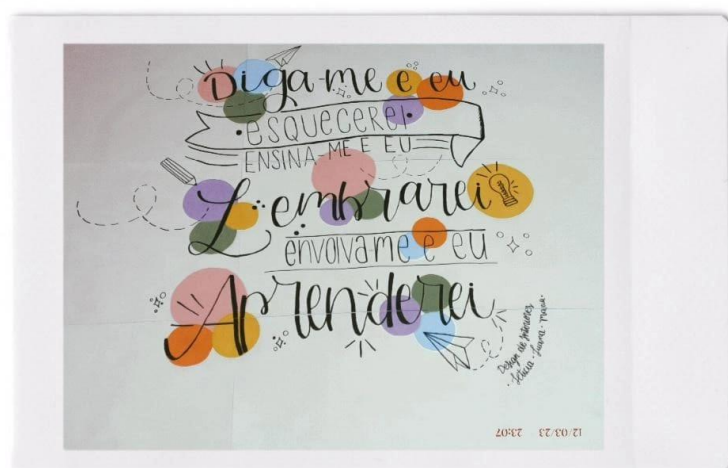 Diga-me e eu
•esquecerei•
ENSINA-ME E EU
Lembrarei
envolvame e eu
Aprenderei
Design de Interiores
Letícia - Luana - Maria -
12/03/23 23:07